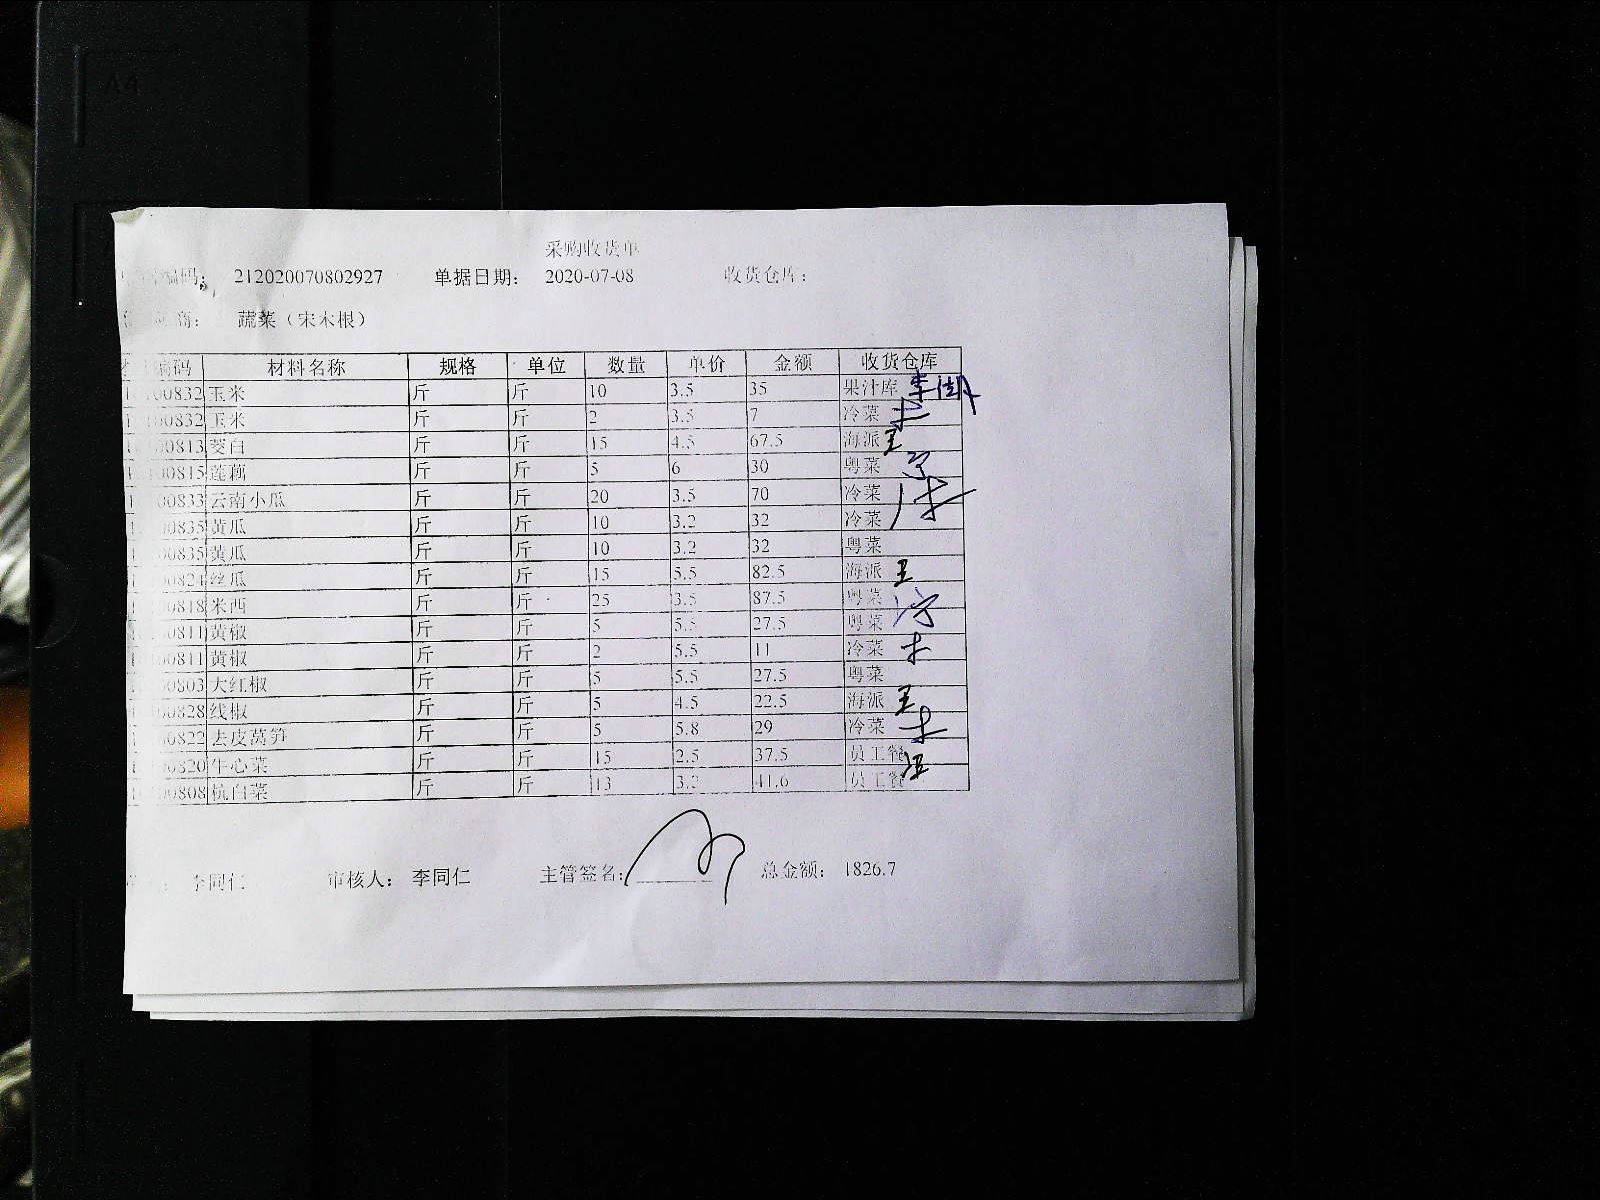 采购收货单
编码： 212020070802927 单据日期： 2020-07-08 收货仓库：
商： 蔬菜（宋木根）
编码 材料名称 规格 单位 数量 单价 金额 收货仓库
00832 玉米 斤 斤 10 3.5 35 果汁库
00832 玉米 斤 斤 2 3.5 7 冷菜
00813 茭白 斤 斤 15 4.5 67.5 海派 王
00815 莲藕 斤 斤 5 6 30 粤菜
00833 云南小瓜 斤 斤 20 3.5 70 冷菜
00835 黄瓜 斤 斤 10 3.2 32 冷菜
00835 黄瓜 斤 斤 10 3.2 32 粤菜
00824 丝瓜 斤 斤 15 5.5 82.5 海派 王
00818 米西 斤 斤 25 3.5 87.5 粤菜
00811 黄椒 斤 斤 5 5.5 27.5 粤菜
00811 黄椒 斤 斤 2 5.5 11 冷菜
00803 大红椒 斤 斤 5 5.5 27.5 粤菜
00828 线椒 斤 斤 5 4.5 22.5 海派 王
00822 去皮莴笋 斤 斤 5 5.8 29 冷菜
00820 牛心菜 斤 斤 15 2.5 37.5 员工餐
00808 杭白菜 斤 斤 13 3.2 41.6 员工餐
李同仁 审核人： 李同仁 主管签名： 总金额： 1826.7